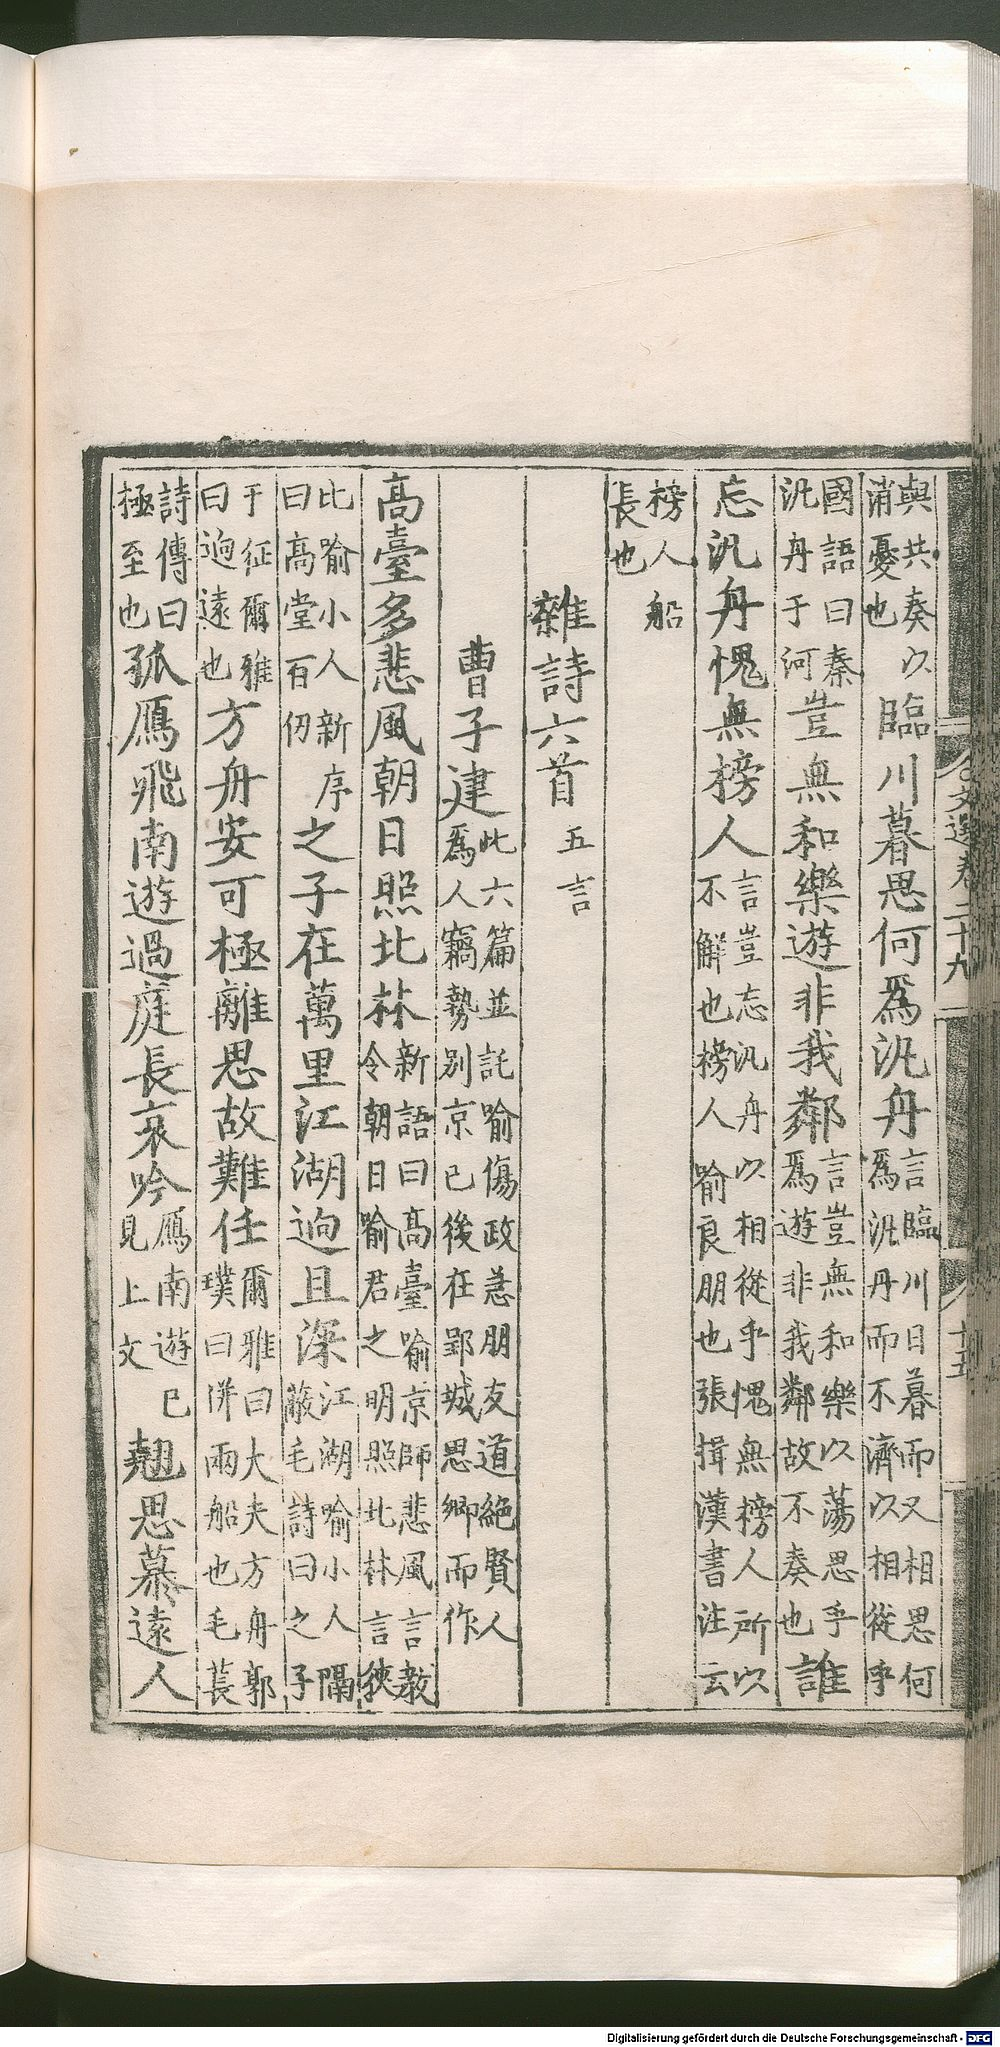 文選卷二十九 十五
與共奏以消憂也臨川暮思何爲汎舟言臨川日暮而又相思何爲汎舟而不濟以相從乎
國語曰秦汎舟于河豈無和樂遊非我鄰言豈無和樂以蕩思乎爲遊非我鄰故不奏也誰
忘汎舟愧無榜人言豈忘汎舟以相從乎愧無榜人所以不解也榜人喻良朋也張揖漢書注云
榜人船長也
雜詩六首五言
曹子建此六篇並託喻傷政急朋友道絶賢人爲人竊勢别京已後在郢城思鄉而作
高臺多悲風朝日照北林新語曰高臺喻京師悲風言教令朝日喻君之明照北林言狹
比喻小人新序曰高堂百仞之子在萬里江湖迥且深江湖喻小人隔蔽毛詩曰之子
于征爾雅曰迥遠也方舟安可極離思故難任爾雅曰大夫方舟郭璞曰併兩船也毛萇
詩傳曰極至也孤鴈飛南遊過庭長哀吟鴈南遊已見上文翹思慕遠人
Digitalisierung gefördert durch die Deutsche Forschungsgemeinschaft - DFG